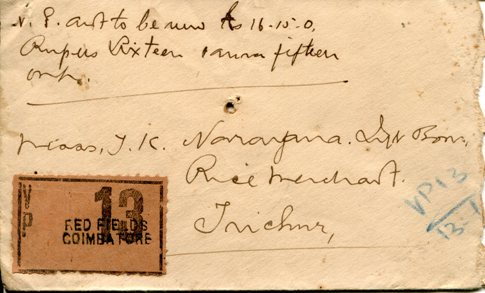 V. P. amt to be recd Rs 16-15-0,
Rupees Sixteen annas fifteen
only.
Messrs, T. K. Narayana Iyer Bons,
Rice Merchant.
Trichur,
V P 13
RED FIELDS
COIMBATORE
VP13